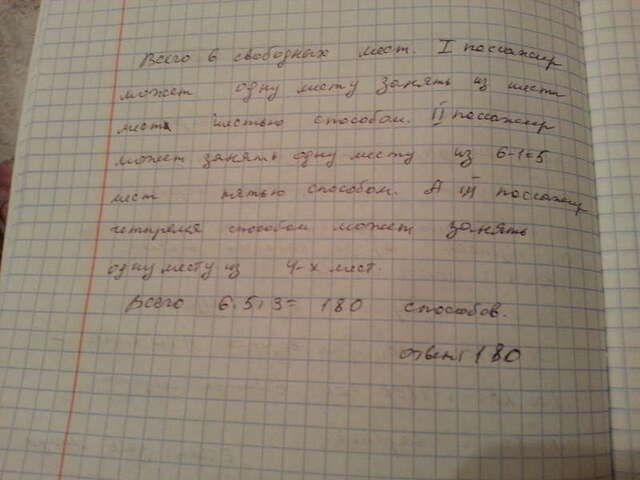 Всего 6 свободных мест. I поссажир
может одну месту занять из шести
мест шестью способом. II поссажир
может занять одну месту из 6-1=5
мест пятью способом. А III поссажир
четыремя способом может занять
одну месту из 4-х мест.
Всего 6.5.3= 180 способов.
ответ 180